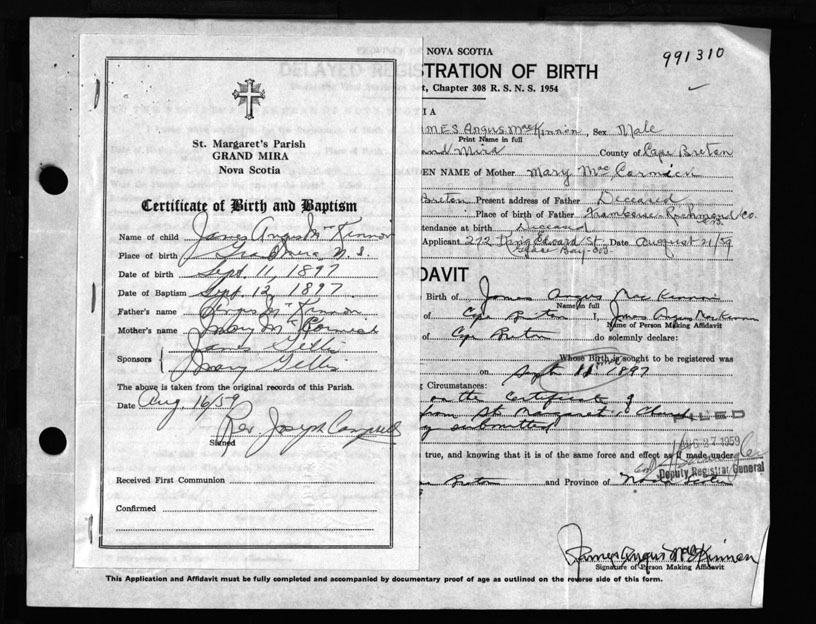 991310
St. Margaret's Parish
GRAND MIRA
Nova Scotia
Certificate of Birth and Baptism
Name of child James Angus Mc Kinnon
Place of birth Grand Mira, N. S.
Date of birth Sept. 11, 1897
Date of Baptism Sept. 12, 1897
Father's name Angus Mc Kinnon
Mother's name Mary Mc Cormick
Sponsors { James Gillis
Mary Gillis
The above is taken from the original records of this Parish.
Date Aug 16/59
Rev. Joseph Campbell
Signed
Received First Communion
Confirmed
NOVA SCOTIA
DELAYED REGISTRATION OF BIRTH
t, Chapter 308 R. S. N. S. 1954
I A
MES Angus MacKinnon, Sex Male
Print Name in full
and Mira County of Cape Breton
EN NAME of Mother Mary Mac Cormick
Breton Present address of Father Deceased
Place of birth of Father Framboise Richmond Co.
C.B.
ttendance at birth Deceased
Applicant 272 King Edward St. Date August 21/59
Glace Bay N.S.
DAVIT
Birth of James Angus MacKinnon
Name in full
of Cape Breton I, James Angus MacKinnon
Name of Person Making Affidavit
of Cape Breton do solemnly declare:
Whose Birth is sought to be registered was
on Sept 11 1897
g Circumstances:
on the certificate of
from St. Margaret's Church
submitted
FILED
AUG 27 1959
true, and knowing that it is of the same force and effect as if made under
Deputy Registrar General
Breton and Province of Nova Scotia
James Angus MacKinnon
Signature of Person Making Affidavit
This Application and Affidavit must be fully completed and accompanied by documentary proof of age as outlined on the reverse side of this form.